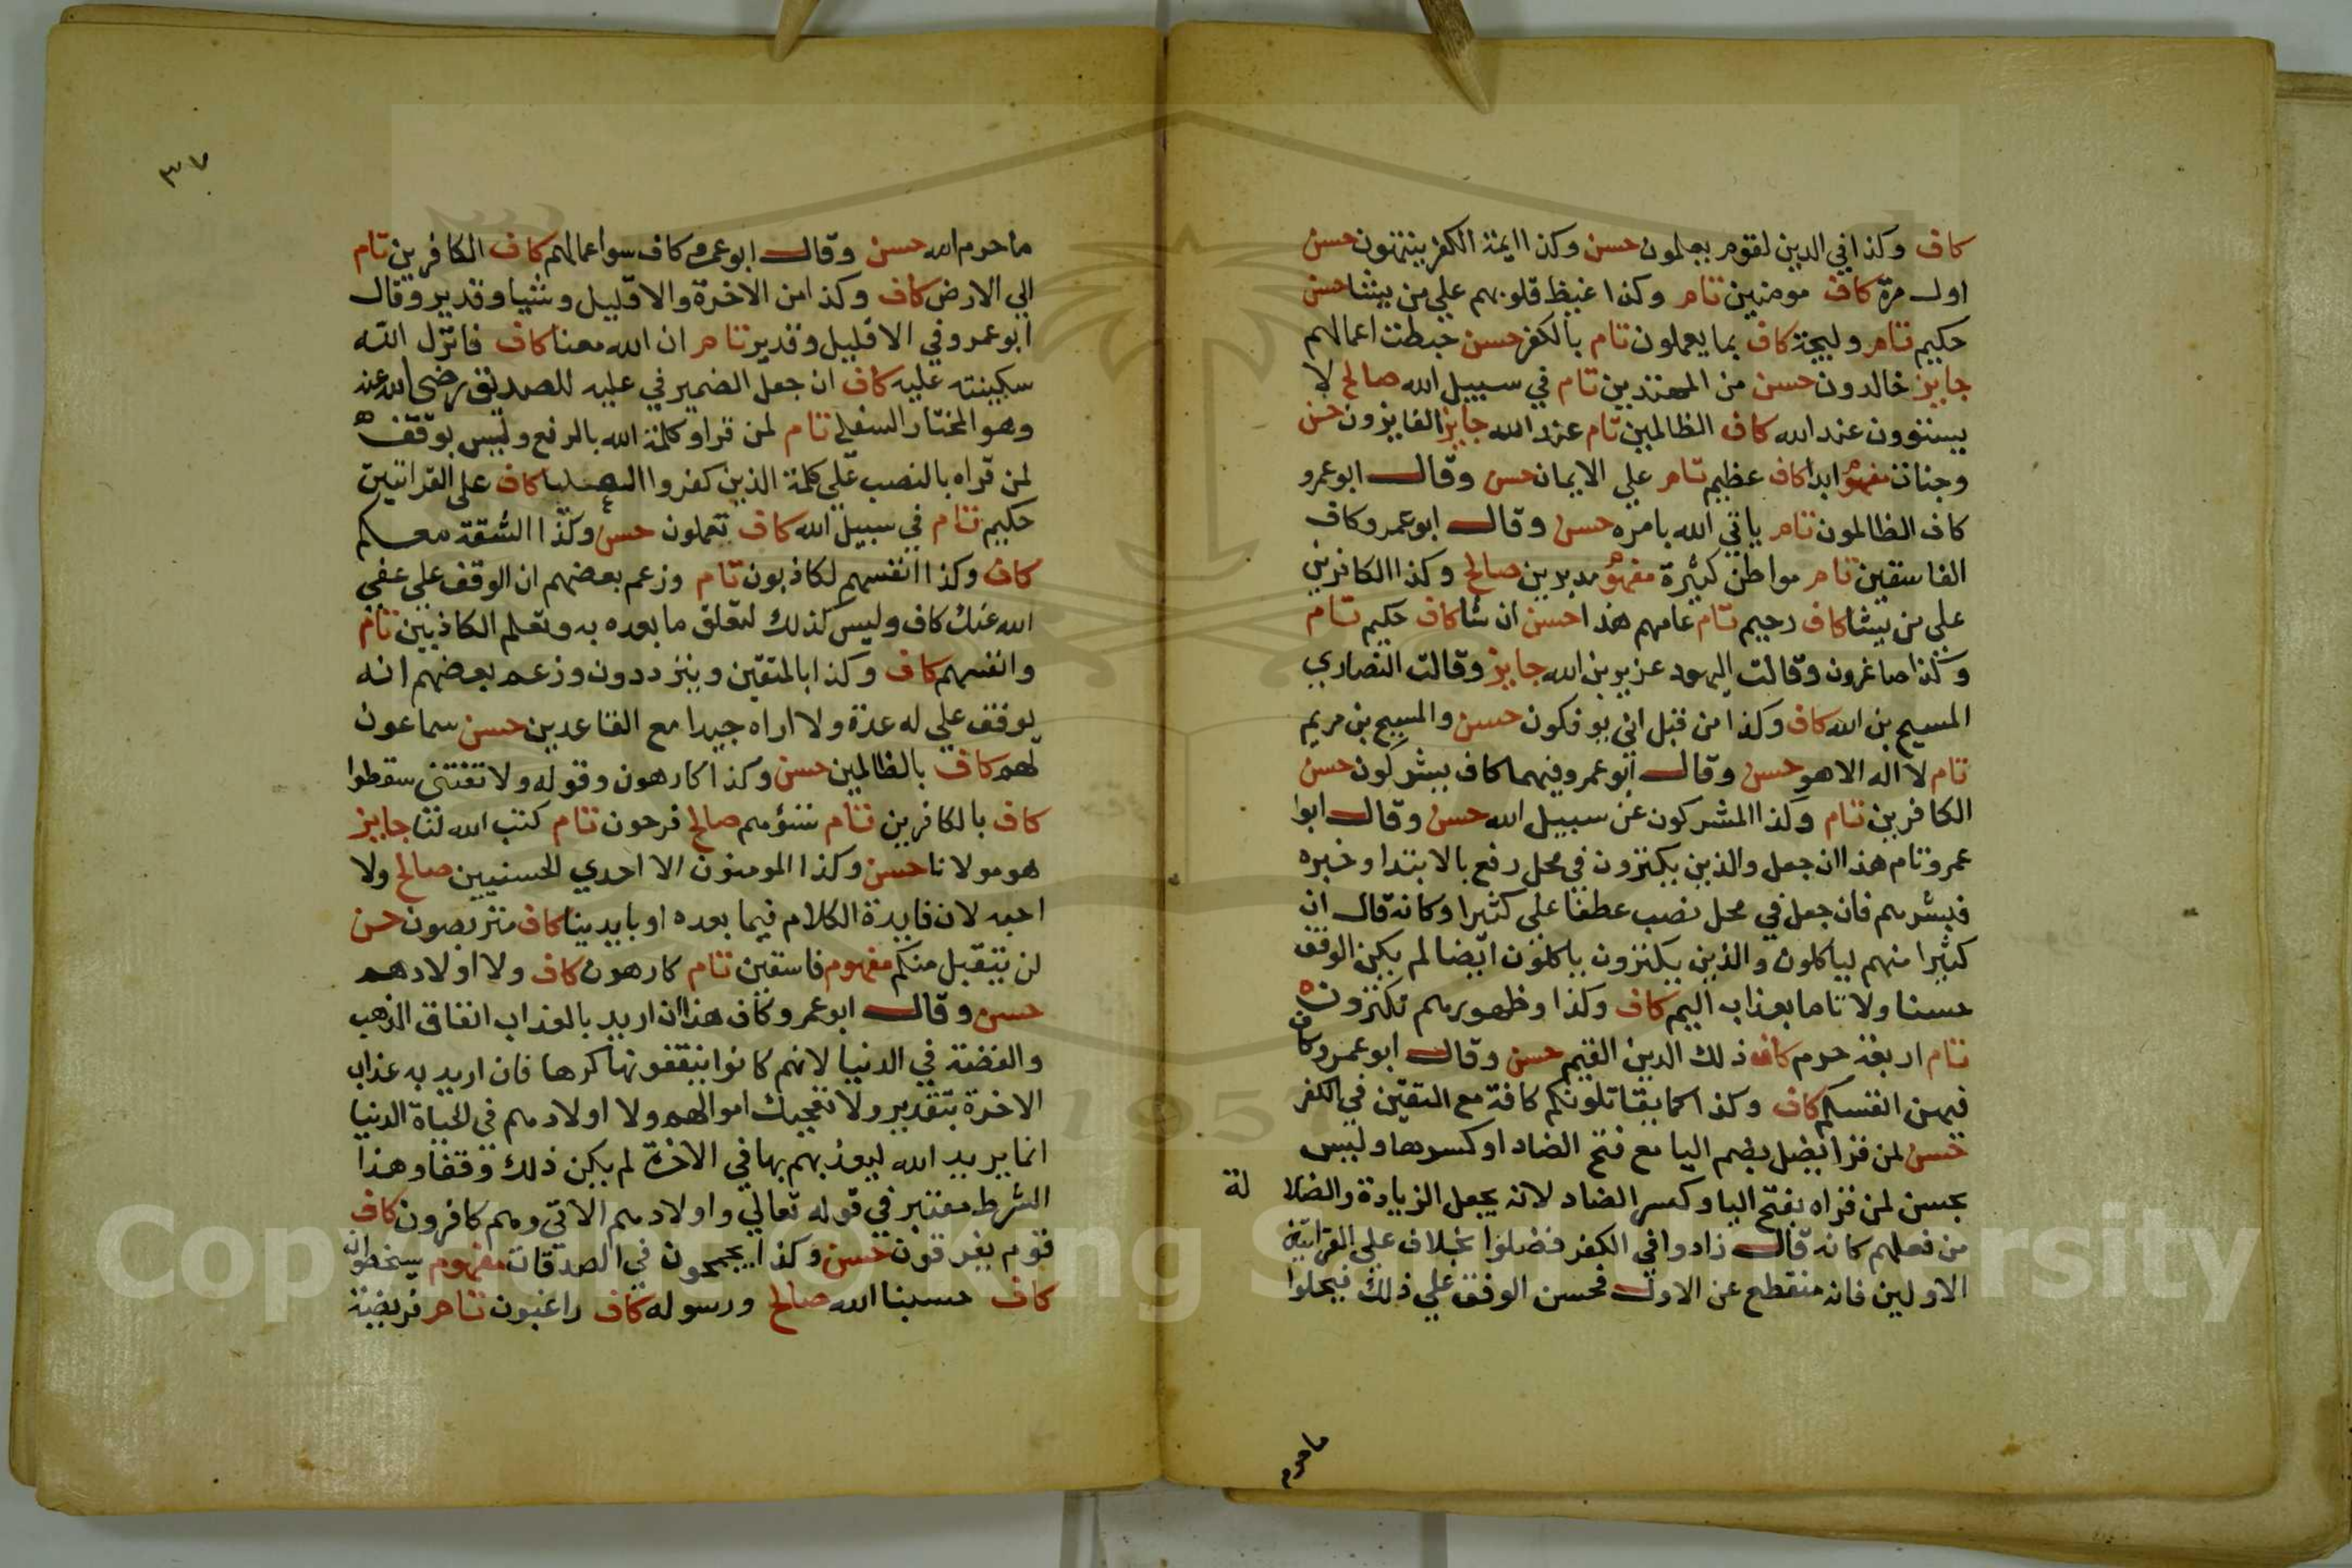 كاف وكذا في الدين لقوم يعلمون حسن وكذا ايمة الكفر ينتهون حسن
اول مرة كاف مومنين تام وكذا غيظ قلوبهم علي من يشا حسن
حكيم تام وليجة كاف بما يعملون تام بالكفر حسن حبطت اعمالهم
جايز خالدون حسن من المهتدين تام في سبيل الله صالح لا
يستوون عند الله كاف الظالمين تام عند الله جايز الفايزون حسن
وجنات مفهوم ابدا كاف عظيم تام علي الايمان حسن وقال ابو عمرو
كاف الظالمون تام ياتي الله بامره حسن وقال ابو عمرو كاف
الفاسقين تام مواطن كثيرة مفهوم مدبرين صالح وكذا الكافرين
علي من يشا كاف رحيم تام عامهم هذا حسن ان شا كاف حكيم تام
وكذا صاغرون وقالت اليهود عزير بن الله جايز وقالت النصاري
المسيح بن الله كاف وكذا من قبل اني يوفكون حسن والمسيح بن مريم
تام لا اله الا هو حسن وقال ابو عمرو فيهما كاف يشركون حسن
الكافرين تام وكذا المشركون عن سبيل الله حسن وقال ابوا
عمرو تام هذا ان جعل والذين يكنزون في محل رفع بالابتدا وخبره
فبشرهم فان جعل في محل نصب عطفا علي كثيرا وكانه قال ان
كثيرا منهم لياكلون والذين يكنزون ياكلون ايضا لم يكن الوقف
حسنا ولا تاما بعذاب اليم كاف وكذا وظهورهم تكنزون
تام اربعة حرم كاف ذلك الدين القيم حسن وقال ابو عمرو كاف
فيهن انفسكم كاف وكذا كما يقاتلونكم كافة مع المتقين في الكفر
حسن لمن قرا يضل بضم اليا مع فتح الضاد او كسرها وليس
بحسن لمن قراه بفتح اليا وكسر الضاد لانه يجعل الزيادة والضلا لة
من فعلهم كانه قال زادوا في الكفر فضلوا بخلاف علي القراتين
الاولين فانه منقطع عن الاول فحسن الوقف علي ذلك فيحلوا
ما حرم
٣٧
ما حرم الله حسن وقال ابو عمرو كاف سوا اعمالهم كاف الكافرين تام
الي الارض كاف وكذا من الاخرة والا قليل وشيا وقدير وقال
ابو عمرو في الا قليل وقدير تام ان الله معنا كاف فانزل الله
سكينته عليه كاف ان جعل الضمير في عليه للصديق رضي الله عنه
وهو المختار السفلي تام لمن قرا وكلمة الله بالرفع وليس بوقف
لمن قراه بالنصب علي كلمة الذين كفروا العليا كاف علي القراتين
حكيم تام في سبيل الله كاف تعملون حسن وكذا الشقة معكم
كاف وكذا انفسهم لكاذبون تام وزعم بعضهم ان الوقف علي عفي
الله عنك كاف وليس كذلك لتعلق ما بعده به وتعلم الكاذبين تام
وانفسهم كاف وكذا بالمتقين ويترددون وزعم بعضهم انه
يوقف علي له عدة ولا اراه جيدا مع القاعدين حسن سماعون
لهم كاف بالظالمين حسن وكذا كارهون وقوله ولا تفتني سقطوا
كاف بالكافرين تام تسؤهم صالح فرحون تام كتب الله لنا جايز
هو مولانا حسن وكذا المومنون الا احدي الحسنيين صالح ولا
احبه لان فايدة الكلام فيما بعده او بايدينا كاف متربصون حسن
لن يتقبل منكم مفهوم فاسقين تام كارهون كاف ولا اولادهم
حسن وقال ابو عمرو كاف هذا ان اريد بالعذاب انفاق الذهب
والفضة في الدنيا لانهم كانوا ينفقونها كرها فان اريد به عذاب
الاخرة بتقدير ولا تعجبك اموالهم ولا اولادهم في الحياة الدنيا
انما يريد الله ليعذبهم بها في الاخرة لم يكن ذلك وقفا وهذا
الشرط معتبر في قوله تعالي واولادهم الاتي وهم كافرون كاف
قوم يفرقون حسن وكذا يجمحون في الصدقات مفهوم يسخطون
كاف حسبنا الله صالح ورسوله كاف راغبون تام فريضة
Copyright © King Saud University
1957